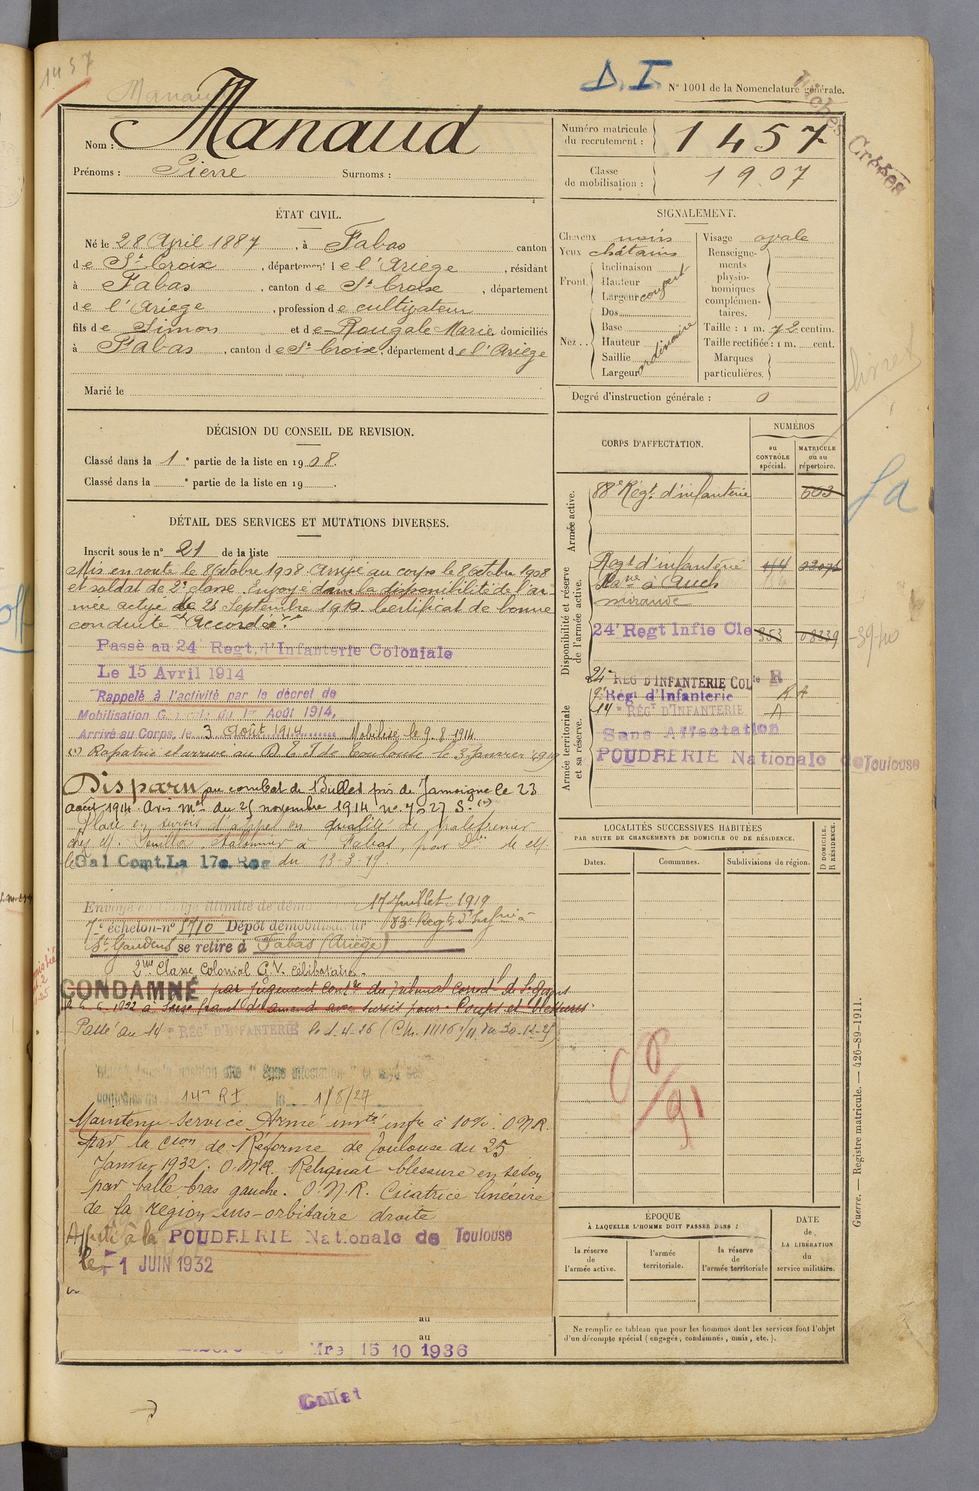 1457
Manaud
D.I.
N° 1001 de la Nomenclature générale.
Fiches Créées
Nom : Manaud
Prénoms : Pierre Surnoms :
Numéro matricule du recrutement : 1457
Classe de mobilisation : 1907
ÉTAT CIVIL.
Né le 28 April 1887, à Fabas canton
de Ste Croix, département de l'Ariège, résidant
à Fabas, canton de Ste Croix, département
de l'Ariège, profession de cultivateur
fils de Simon et de Rougale Marie domiciliés
à Fabas, canton de Ste Croix, département de l'Ariège
Marié le
SIGNALEMENT.
Cheveux noirs
Yeux châtains
Front. Inclinaison
Hauteur
Largeur
Nez .. Dos
Base
Hauteur
Saillie
Largeur
ordinaire
Visage ovale
Renseignements physionomiques complémentaires.
Taille : 1 m. 72 centim.
Taille rectifiée : 1 m. cent.
Marques particulières.
Degré d'instruction générale : 0
DÉCISION DU CONSEIL DE REVISION.
Classé dans la 1e partie de la liste en 1908.
Classé dans la e partie de la liste en 19 .
DÉTAIL DES SERVICES ET MUTATIONS DIVERSES.
Inscrit sous le n° 21 de la liste
Mis en route le 8 Octobre 1908. Arrivé au corps le 8 octobre 1908
et soldat de 2e classe. Envoyé dans la disponibilité de l'ar-
mée active le 25 Septembre 1910. Certificat de bonne
conduite "Accordé".
Passé au 24e Regt. d'Infanterie Coloniale
Le 15 Avril 1914
Rappelé à l'activité par le décret de
Mobilisation Générale du 1er Août 1914,
Arrivé au Corps, le 3 Août 1914 Mobilisé le 9.8.1914
(1) Rapatrié et arrivé au D.E.I de Toulouse le 3 Janvier 1919
Disparu au combat de Bulles près de Jamoigne le 23
août 1914. Avis mel du 25 novembre 1914 no 7527 S. (1)
Placé en sursis d'appel en qualité de palefrenier
chez M. étalonnier à Fabas, par Don de M.
le Gal Comt. La 17e Reg du 13-3-19
Envoyé en congé illimité de démo 17 Juillet 1919
7e échelon-n° 1710 Dépôt démobilisateur 83e Regt d'Infie à
St Gaudens se retire à Fabas (Ariège)
2me Classe Colonial G.V. célibataire.
CONDAMNÉ par Jugement Contre du Tribunal Correl de St Girons
1922 à francs d'amende avec sursis pour Coups et blessures
Passé au 14e RÉGt D'INFANTERIE le 1-4-26
"Sans affectation"
14me RI le 1/8/27
Maintenu service Armé invté infre à 10% O.N.R.
par la Cion de Réforme de Toulouse du 25
Janvier 1932. O.M.R. Reliquat blessure en séton
par balle bras gauche. O.N.R. Cicatrice linéaire
de la région sus-orbitaire droite
Affecté à la POUDRERIE Nationale de Toulouse
le 1 JUIN 1932
au
au
Mre 15 10 1936
CORPS D'AFFECTATION.
NUMÉROS
au CONTRÔLE spécial.
MATRICULE ou au répertoire.
Armée active.
88e Régt d'infanterie 603
Disponibilité et réserve de l'armée active.
Regt d'infanterie
à Auch
mirande
24e Regt Infie Cle 353 08239
Armée territoriale et sa réserve.
24e REG D'INFANTERIE COLle R
Regt d'Infanterie
14e RÉGt D'INFANTERIE A
Sans Affectation
POUDRERIE Nationale de Toulouse
LOCALITÉS SUCCESSIVES HABITÉES
PAR SUITE DE CHANGEMENTS DE DOMICILE OU DE RÉSIDENCE.
Dates. Communes. Subdivisions de région.
D DOMICILE. R RÉSIDENCE.
ÉPOQUE
À LAQUELLE L'HOMME DOIT PASSER DANS :
la réserve de l'armée active.
l'armée territoriale.
la réserve de l'armée territoriale
DATE de LA LIBÉRATION du service militaire.
Ne remplir ce tableau que pour les hommes dont les services font l'objet
d'un décompte spécial (engagés, condamnés, omis, etc.).
Guerre. — Registre matricule. — 426-89-1911.